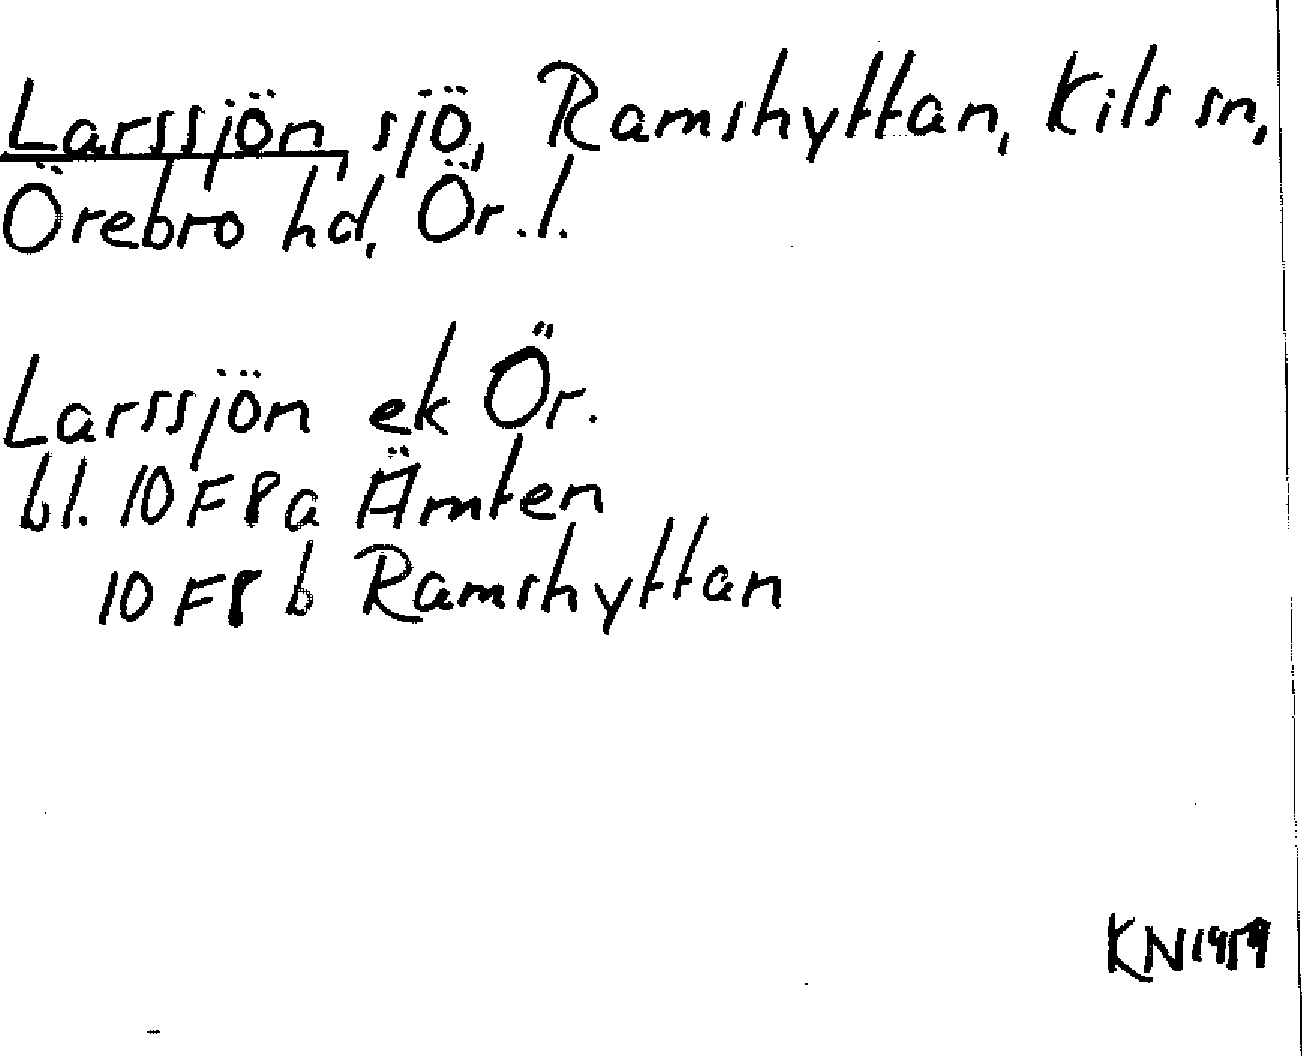 Larssjön, sjö, Ramshyttan, Kils sn,
Örebro hd, Ör. l.
Larssjön ek Ör.
bl. 10 F 8 a Ämten
10 F 8 b Ramshyttan
KN